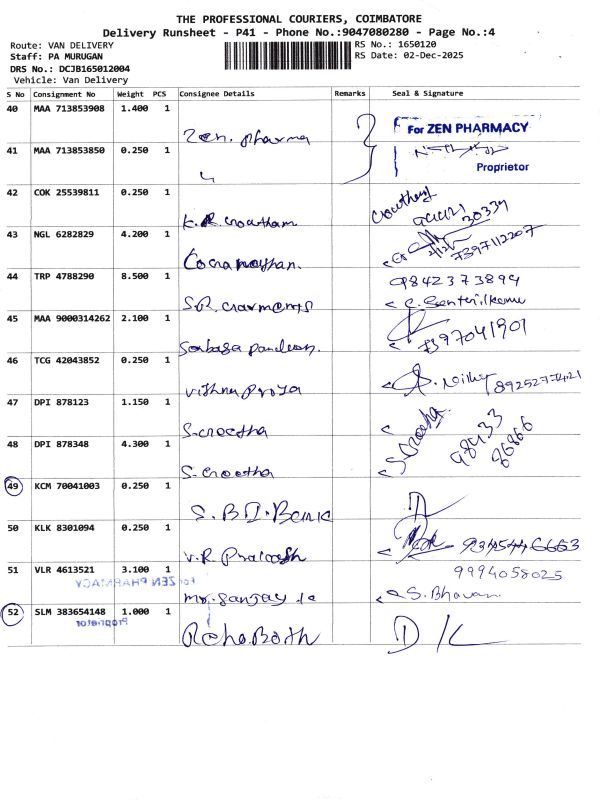 THE PROFESSIONAL COURIERS, COIMBATORE
Delivery Runsheet - P41 - Phone No.:9047080280 - Page No.:4
Route: VAN DELIVERY
RS No.: 1650120
Staff: PA MURUGAN
RS Date: 02-Dec-2025
DRS No.: DCJB165012004
Vehicle: Van Delivery
S No Consignment No Weight PCS Consignee Details Remarks Seal & Signature
40 MAA 713853908 1.400 1
Zen. pharma
For ZEN PHARMACY
Proprietor
41 MAA 713853850 0.250 1
42 COK 25539811 0.250 1
K.R. Crowtham
43 NGL 6282829 4.200 1
7397112207
44 TRP 4788290 8.500 1
S.R. Crarments
9842373894
45 MAA 9000314262 2.100 1
7397041901
46 TCG 42043852 0.250 1
Vishnu Priya
47 DPI 878123 1.150 1
S. Creetha
48 DPI 878348 4.300 1
S. Creetha
98433
86866
49 KCM 70041003 0.250 1
S.B.I. Bank
50 KLK 8301094 0.250 1
V.R. Prakash
51 VLR 4613521 3.100 1
For ZEN PHARMACY
Mr. Sanjay
9994058025
S. Bhavan
52 SLM 383654148 1.000 1
Proprietor
RehoBoth
D/C